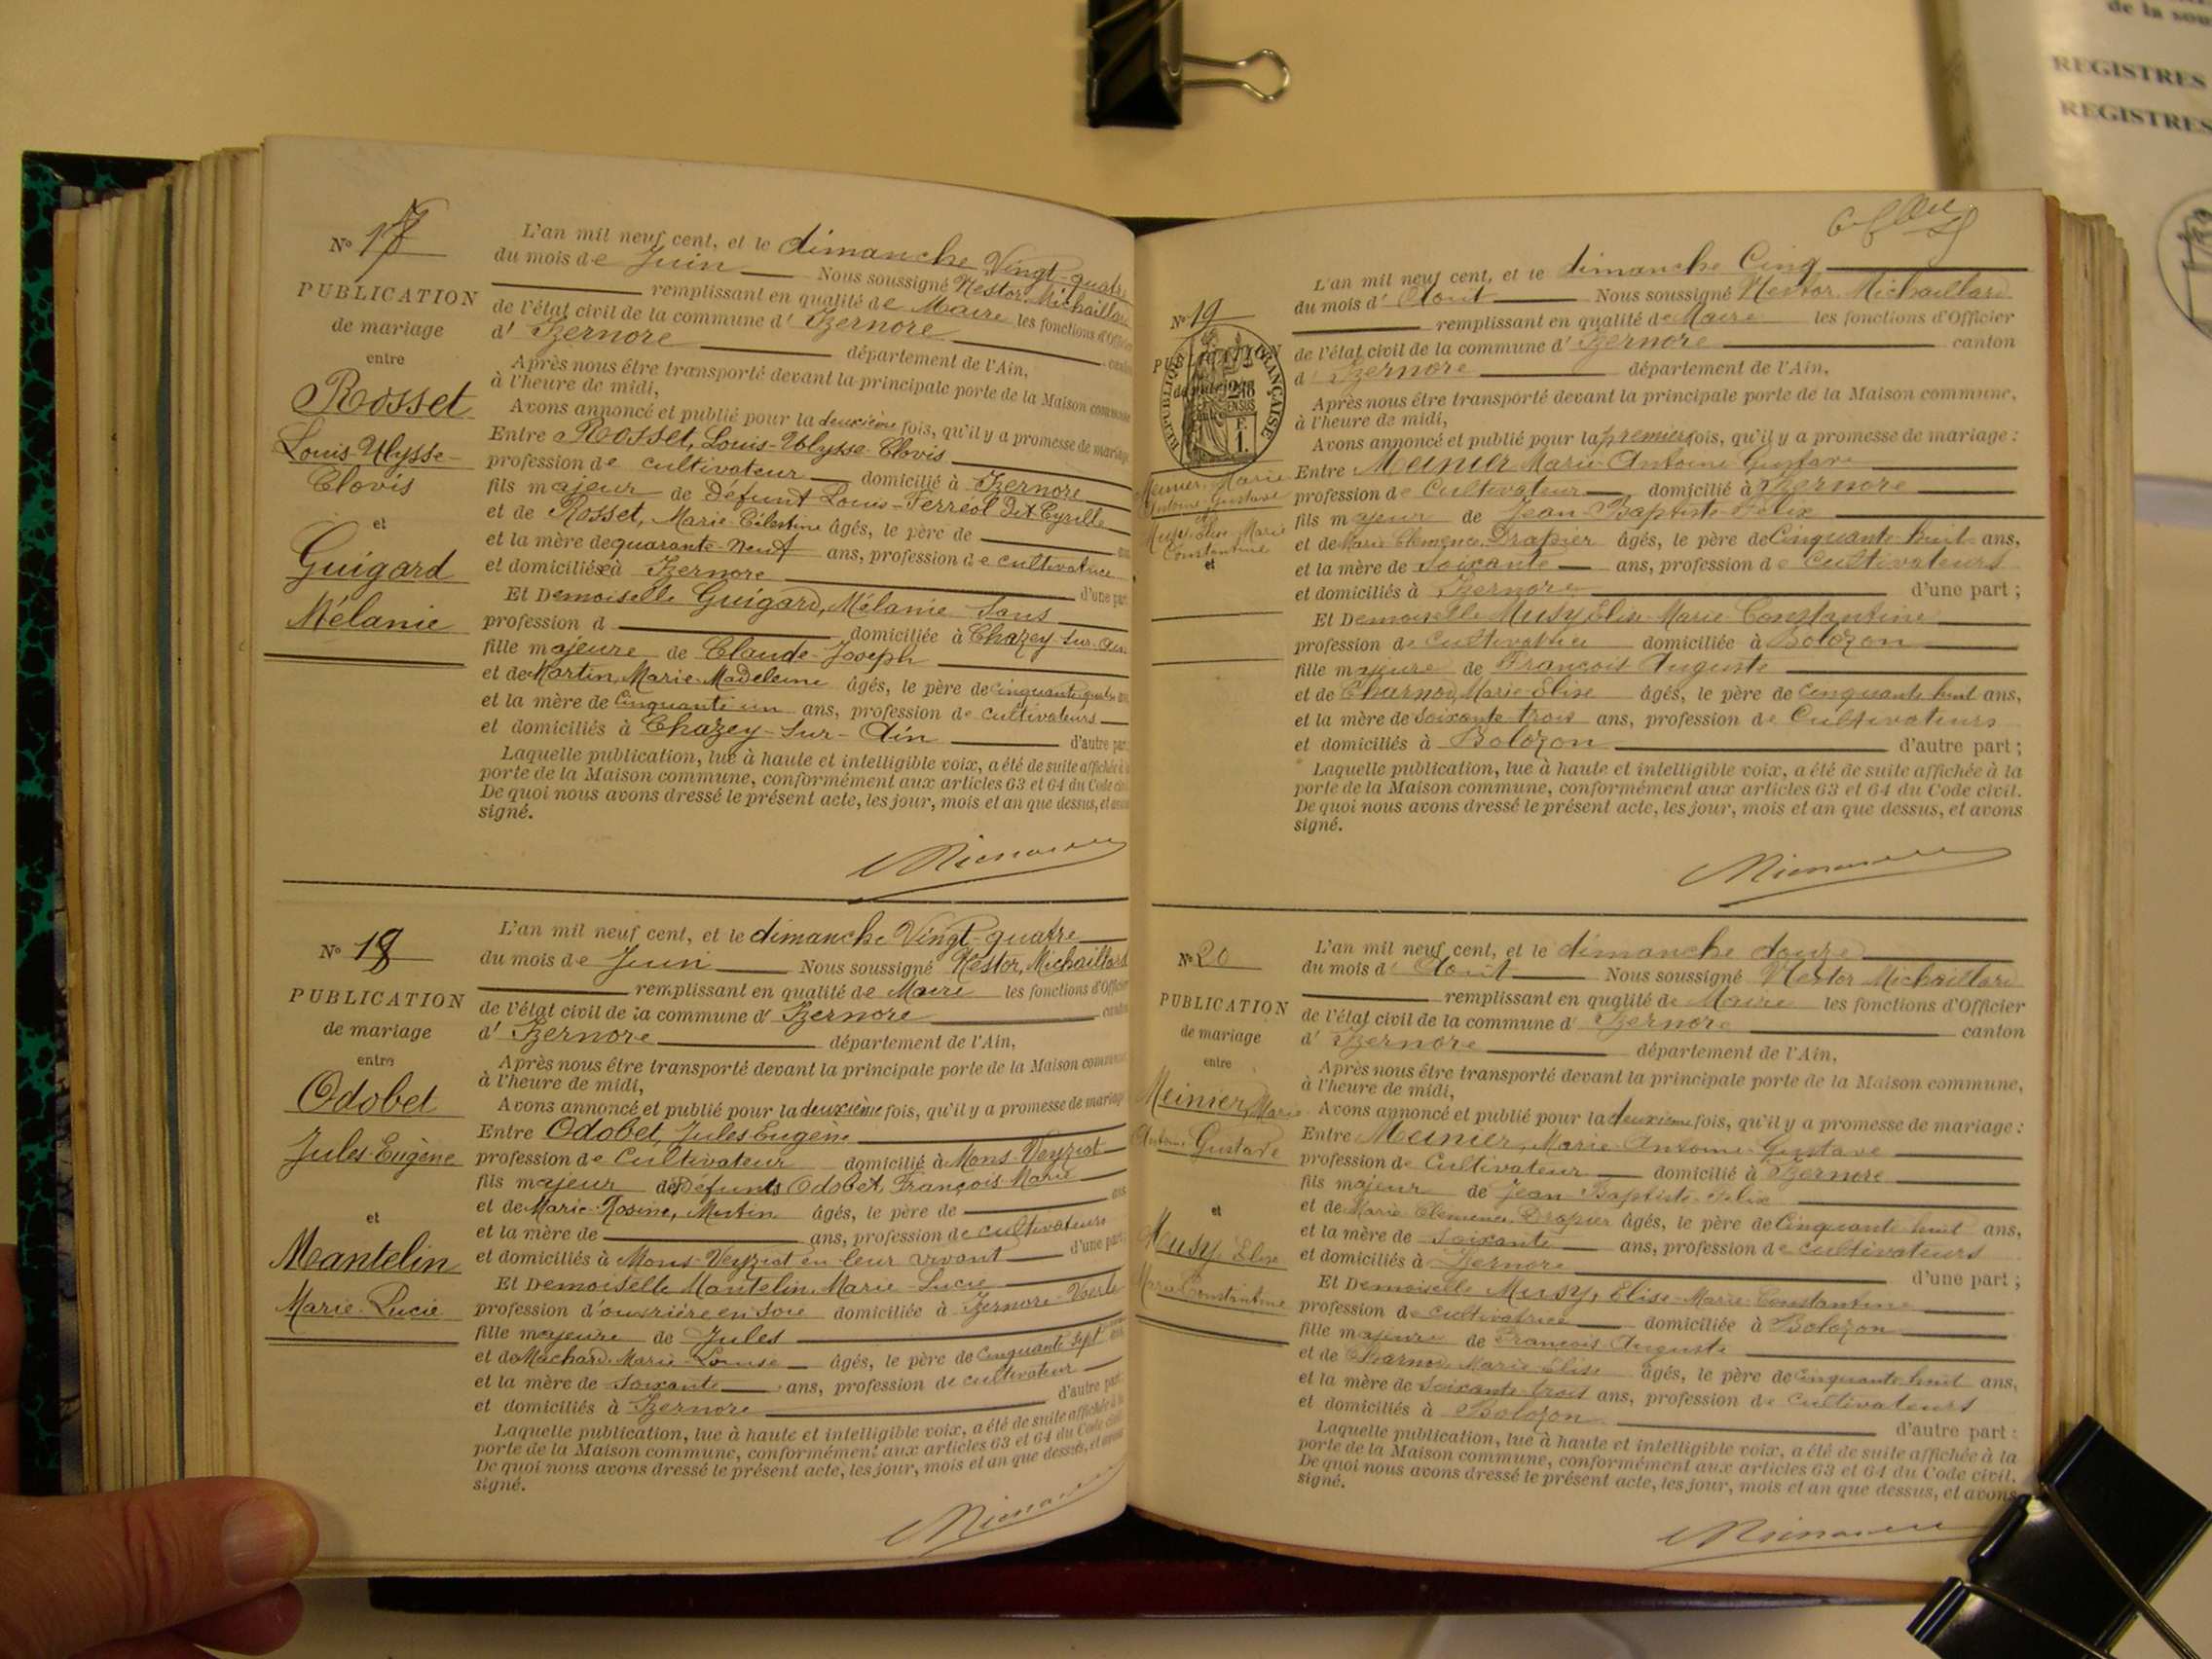 de la sou
REGISTRES
REGISTRES
N° 17
PUBLICATION
de mariage
entre
Rosset
Louis-Ulysse-
Clovis
et
Guigard
Mélanie
L'an mil neuf cent, et le dimanche Vingt-quatre
du mois de Juin Nous soussigné Nestor Michaillard
remplissant en qualité de Maire les fonctions d'Officier
de l'état civil de la commune d' Izernore canton
d' Izernore département de l'Ain,
Après nous être transporté devant la principale porte de la Maison commune
à l'heure de midi,
Avons annoncé et publié pour la deuxième fois, qu'il y a promesse de mariage
Entre Rosset, Louis-Ulysse-Clovis
profession de cultivateur domicilié à Izernore
fils majeur de Défunt Louis-Ferréol dit Cyrille
et de Rosset, Marie-Célestine âgés, le père de ans
et la mère de quarante-neuf ans, profession de cultivatrice
et domiciliée à Izernore d'une part
Et Demoiselle Guigard, Mélanie Sans
profession d domiciliée à Chazey-sur-Ain
fille majeure de Claude-Joseph
et de Martin, Marie-Madeleine âgés, le père de cinquante quatre ans
et la mère de Cinquante un ans, profession de cultivateurs
et domiciliés à Chazey-sur-Ain d'autre part
Laquelle publication, lue à haute et intelligible voix, a été de suite affichée à la
porte de la Maison commune, conformément aux articles 63 et 64 du Code civil
De quoi nous avons dressé le présent acte, les jour, mois et an que dessus, et avons
signé.
N° 18
PUBLICATION
de mariage
entre
Odobet
Jules-Eugène
et
Mantelin
Marie-Lucie
L'an mil neuf cent, et le dimanche Vingt-quatre
du mois de Juin Nous soussigné Nestor, Michaillard
remplissant en qualité de Maire les fonctions d'Officier
de l'état civil de la commune d' Izernore canton
d' Izernore département de l'Ain,
Après nous être transporté devant la principale porte de la Maison commune
à l'heure de midi,
Avons annoncé et publié pour la deuxième fois, qu'il y a promesse de mariage
Entre Odobet, Jules Eugène
profession de Cultivateur domicilié à Mons-Veyziat
fils majeur de Défunts Odobet, François-Marie
et de Marie-Rosine, Martin âgés, le père de ans
et la mère de ans, profession de cultivateurs
et domiciliés à Mons-Veyziat en leur vivant d'une part
Et Demoiselle Mantelin, Marie-Lucie
profession d'ouvrière en soie domiciliée à Izernore-Voerle
fille majeure de Jules
et de Machard, Marie-Louise âgés, le père de Cinquante sept ans
et la mère de Soixante ans, profession de cultivateur
et domiciliés à Izernore d'autre part
Laquelle publication, lue à haute et intelligible voix, a été de suite affichée à la
porte de la Maison commune, conformément aux articles 63 et 64 du Code civil
De quoi nous avons dressé le présent acte, les jour, mois et an que dessus, et avons
signé.
N° 19
PUBLICATION
RÉPUBLIQUE FRANÇAISE
Meinier, Marie
Antoine Gustave
et
Musy, Elise Marie
Constantine
et
L'an mil neuf cent, et le dimanche Cinq
du mois d' Août Nous soussigné Nestor Michaillard
remplissant en qualité de Maire les fonctions d'Officier
de l'état civil de la commune d' Izernore canton
d' Izernore département de l'Ain,
Après nous être transporté devant la principale porte de la Maison commune,
à l'heure de midi,
Avons annoncé et publié pour la premier fois, qu'il y a promesse de mariage :
Entre Meinier Marie Antoine Gustave
profession de Cultivateur domicilié à Izernore
fils majeur de Jean-Baptiste-Félix
et de Marie Clémence Drapier âgés, le père de Cinquante-huit ans,
et la mère de Soixante ans, profession de Cultivateurs
et domiciliés à Izernore d'une part ;
Et Demoiselle Musy Elise-Marie-Constantine
profession de Cultivatrice domiciliée à Bolozon
fille majeure de François Auguste
et de Charnod, Marie-Elise âgés, le père de Cinquante huit ans,
et la mère de Soixante-trois ans, profession de Cultivateurs
et domiciliés à Bolozon d'autre part ;
Laquelle publication, lue à haute et intelligible voix, a été de suite affichée à la
porte de la Maison commune, conformément aux articles 63 et 64 du Code civil.
De quoi nous avons dressé le présent acte, les jour, mois et an que dessus, et avons
signé.
N° 20
PUBLICATION
de mariage
entre
Meinier, Marie
Antoine Gustave
et
Musy, Elise
Marie Constantine
L'an mil neuf cent, et le dimanche douze
du mois d' Août Nous soussigné Nestor Michaillard
remplissant en qualité de Maire les fonctions d'Officier
de l'état civil de la commune d' Izernore canton
d' Izernore département de l'Ain,
Après nous être transporté devant la principale porte de la Maison commune,
à l'heure de midi,
Avons annoncé et publié pour la deuxième fois, qu'il y a promesse de mariage :
Entre Meinier, Marie-Antoine-Gustave
profession de Cultivateur domicilié à Izernore
fils majeur de Jean-Baptiste-Félix
et de Marie Clémence Drapier âgés, le père de Cinquante huit ans,
et la mère de Soixante ans, profession de cultivateurs
et domiciliés à Izernore d'une part ;
Et Demoiselle Musy, Elise-Marie-Constantine
profession de cultivatrice domiciliée à Bolozon
fille majeure de François Auguste
et de Charnod, Marie-Elise âgés, le père de Cinquante huit ans,
et la mère de Soixante-trois ans, profession de cultivateurs
et domiciliés à Bolozon d'autre part :
Laquelle publication, lue à haute et intelligible voix, a été de suite affichée à la
porte de la Maison commune, conformément aux articles 63 et 64 du Code civil.
De quoi nous avons dressé le présent acte, les jour, mois et an que dessus, et avons
signé.